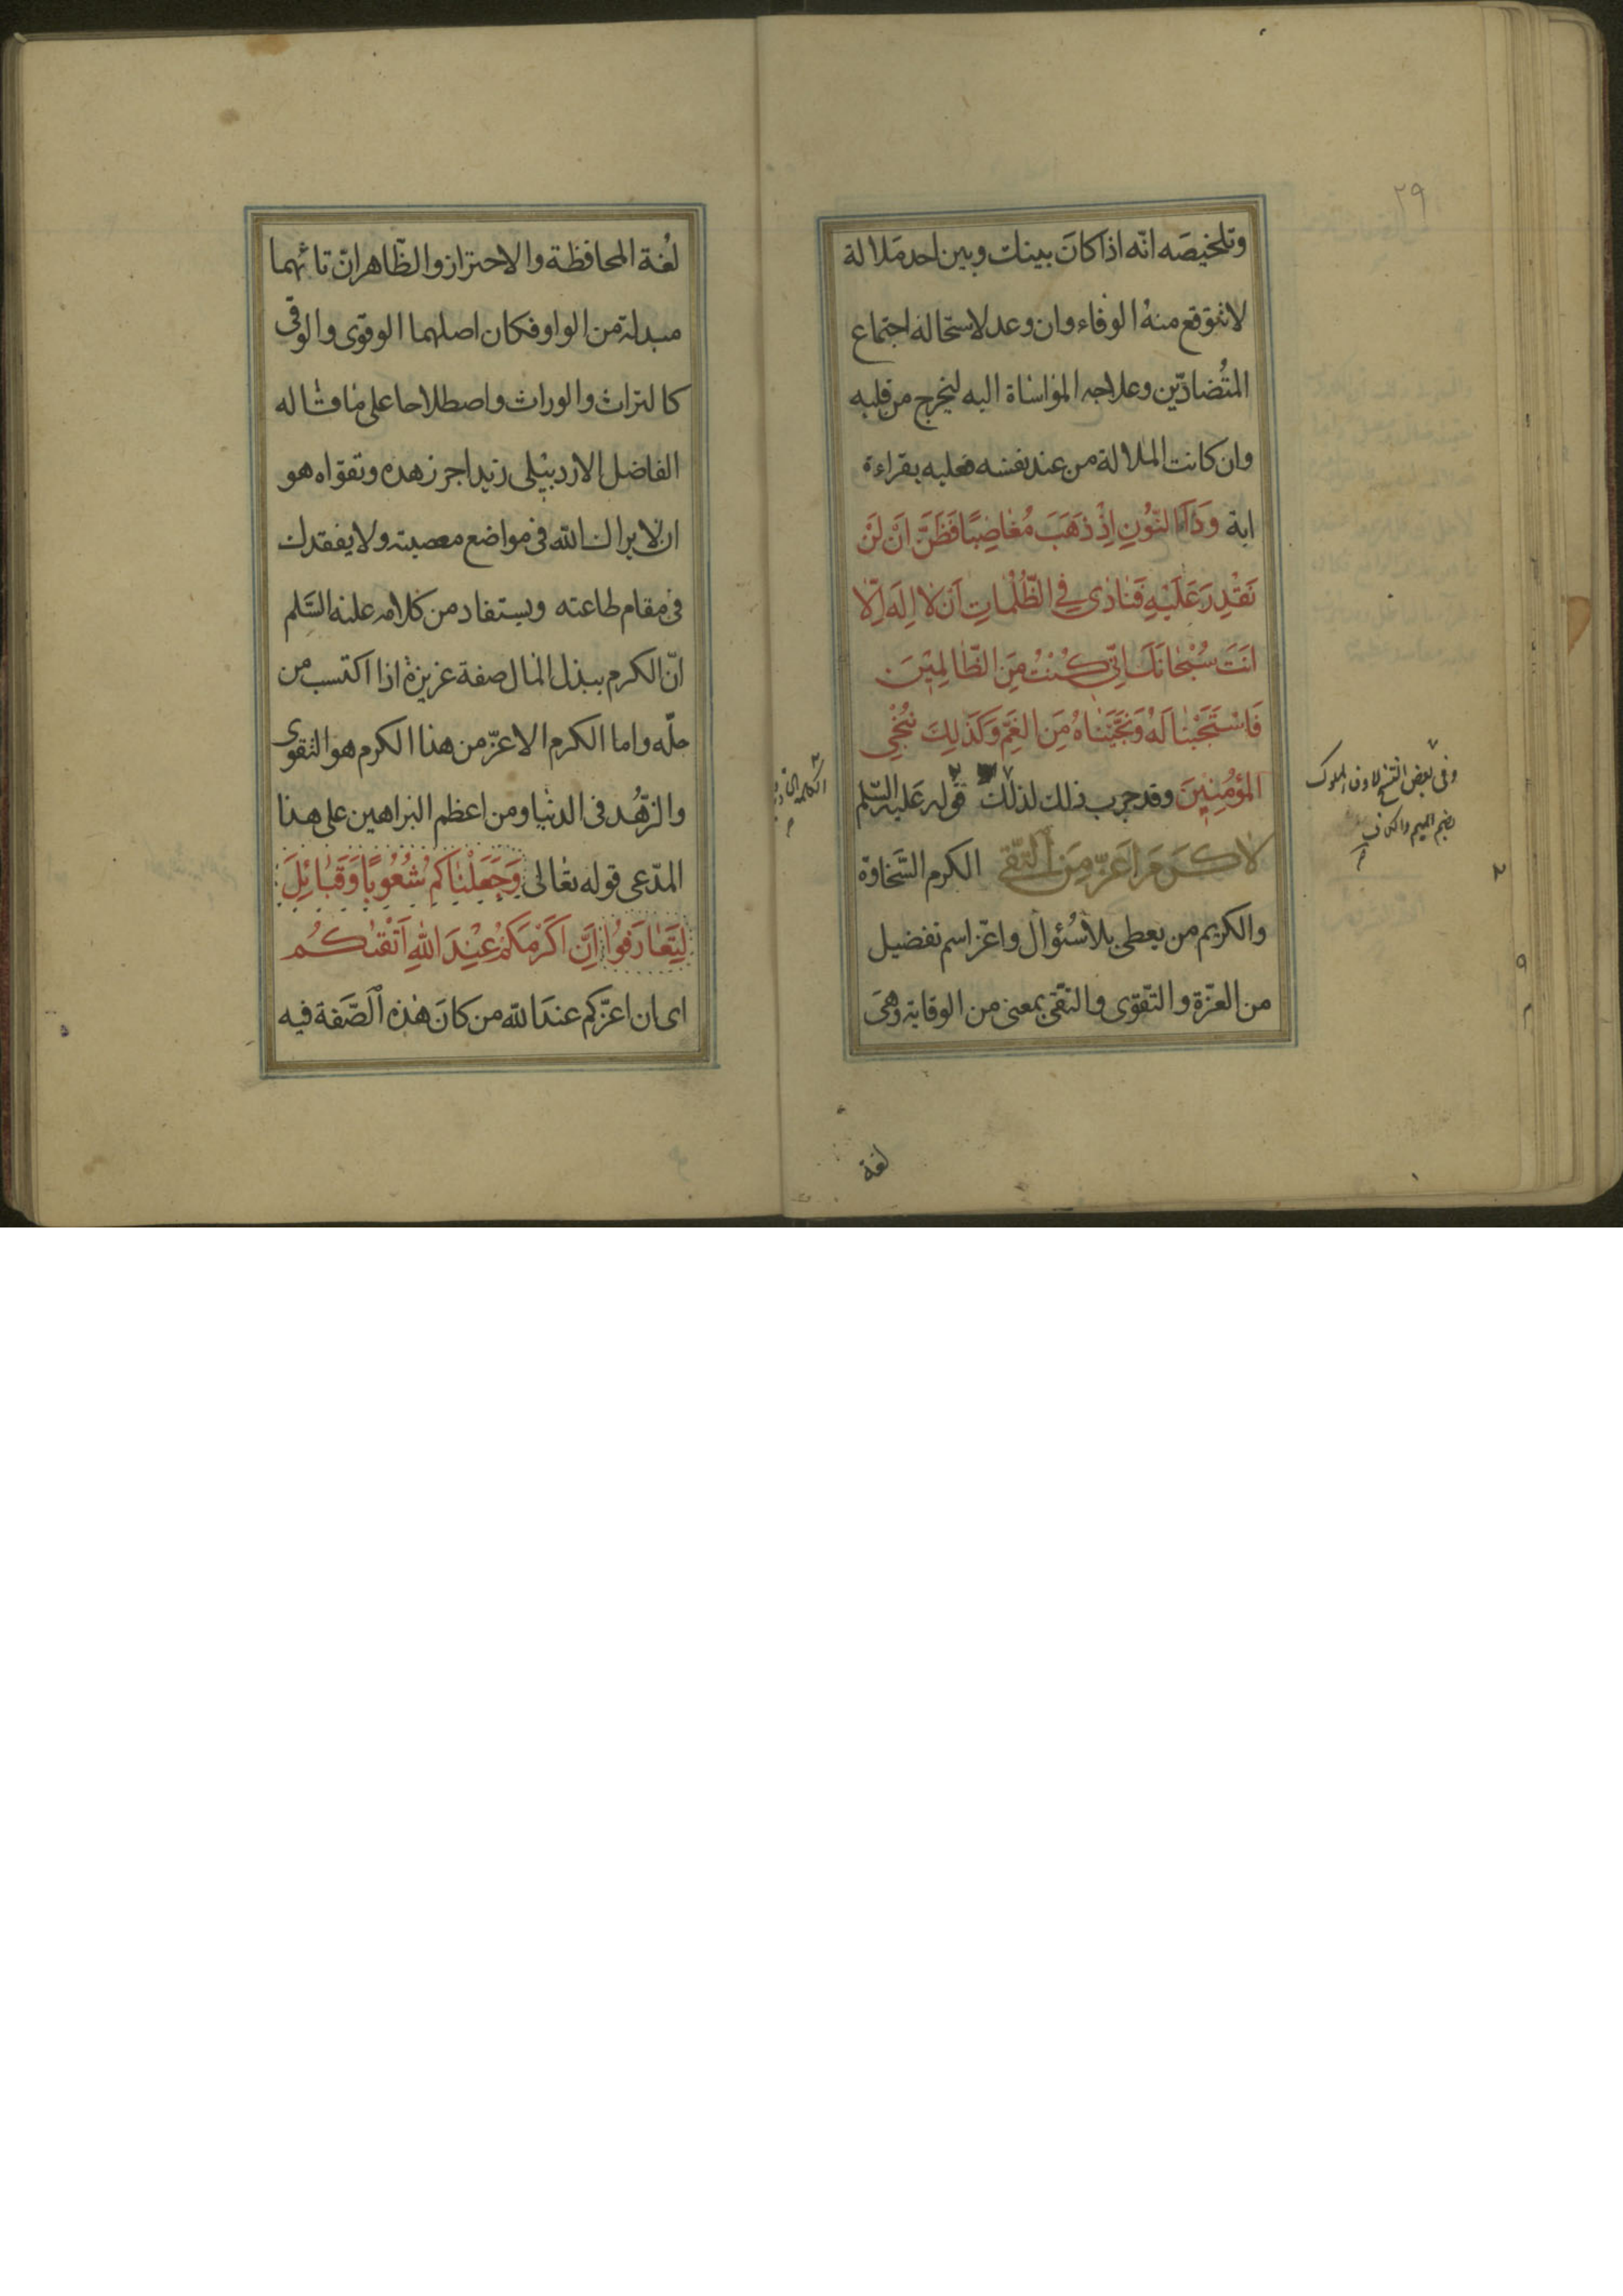 ٢٩
وتلخيصه انّه اذا كانَ بينك وبين احد مَلالة
لا تتوقع منهُ الوفاء وان وعد لاستحالة اجتماع
المتُضادّين وعلاجه المواساة اليه ليخرج من قلبه
وان كانت الملالة من عند نفسه فعليه بقراءة
اية وَذَا النّوُنِ اِذْ ذَهَبَ مُغاضِبًا فَظَنَّ اَنْ لَنْ
نَقْدِرَ عَلَيْهِ فَنادٰى فِي الظُّلُماتِ اَنْ لا اِلَهَ اِلّا
اَنتَ سُبْحانَكَ اِنّى كُنْتُ مِنَ الظّالِمِيْنَ
فَاسْتَجَبْنا لَهُ وَنَجَّيَنَاهُ مِنَ الغَمِّ وَكَذلِكَ نُنْجِي
المؤمُنِيِنَ وقد جرب ذلك لذلك قوله عَليه السّلم
لا كَرَمَ اَعَزّ مِنَ التّقى الكرم السَّخاوة
والكريم من يعطى بلا سُئوال واعزّ اسم تفضيل
من العزّة والتّقوى والتّقى بمعنى من الوقاية وهى
وفى بعض النسخ لاوفاء لملوك
بضم الميم والكاف
الكلمة
لغة
لُغة المحافظة والاحتراز والظّاهر انّ تائهما
مبدلة من الواو فكان اصلهما الوقوى والوقى
كالتراث والوراث واصطلاحا على ما قاله
الفاضل الاردبيلى زيد اجر زهده وتقواه هو
ان لا يراك الله فى مواضع معصيته ولا يفقدك
فى مقام طاعته ويستفاد من كلامه عليه السَّلم
انّ الكرم ببذل المال صفة عزيزة اذا اكتسب من
حلّه واما الكرم الاعزّ من هذا الكرم هو التقوى
والزّهُد فى الدنيا ومن اعظم البراهين على هذا
المدّعى قوله تعالى وَجَعَلْنٰاكم شُعُوبًا وَقَبٰائِلَ
لِيَتَعٰارَفوُا اِنَّ اَكَرَمَكمُ عِنْدَ اللهِ اَتْقيٰكُم
اى ان اعزّكم عندَ الله من كانَ هٰذه الصّفة فيه